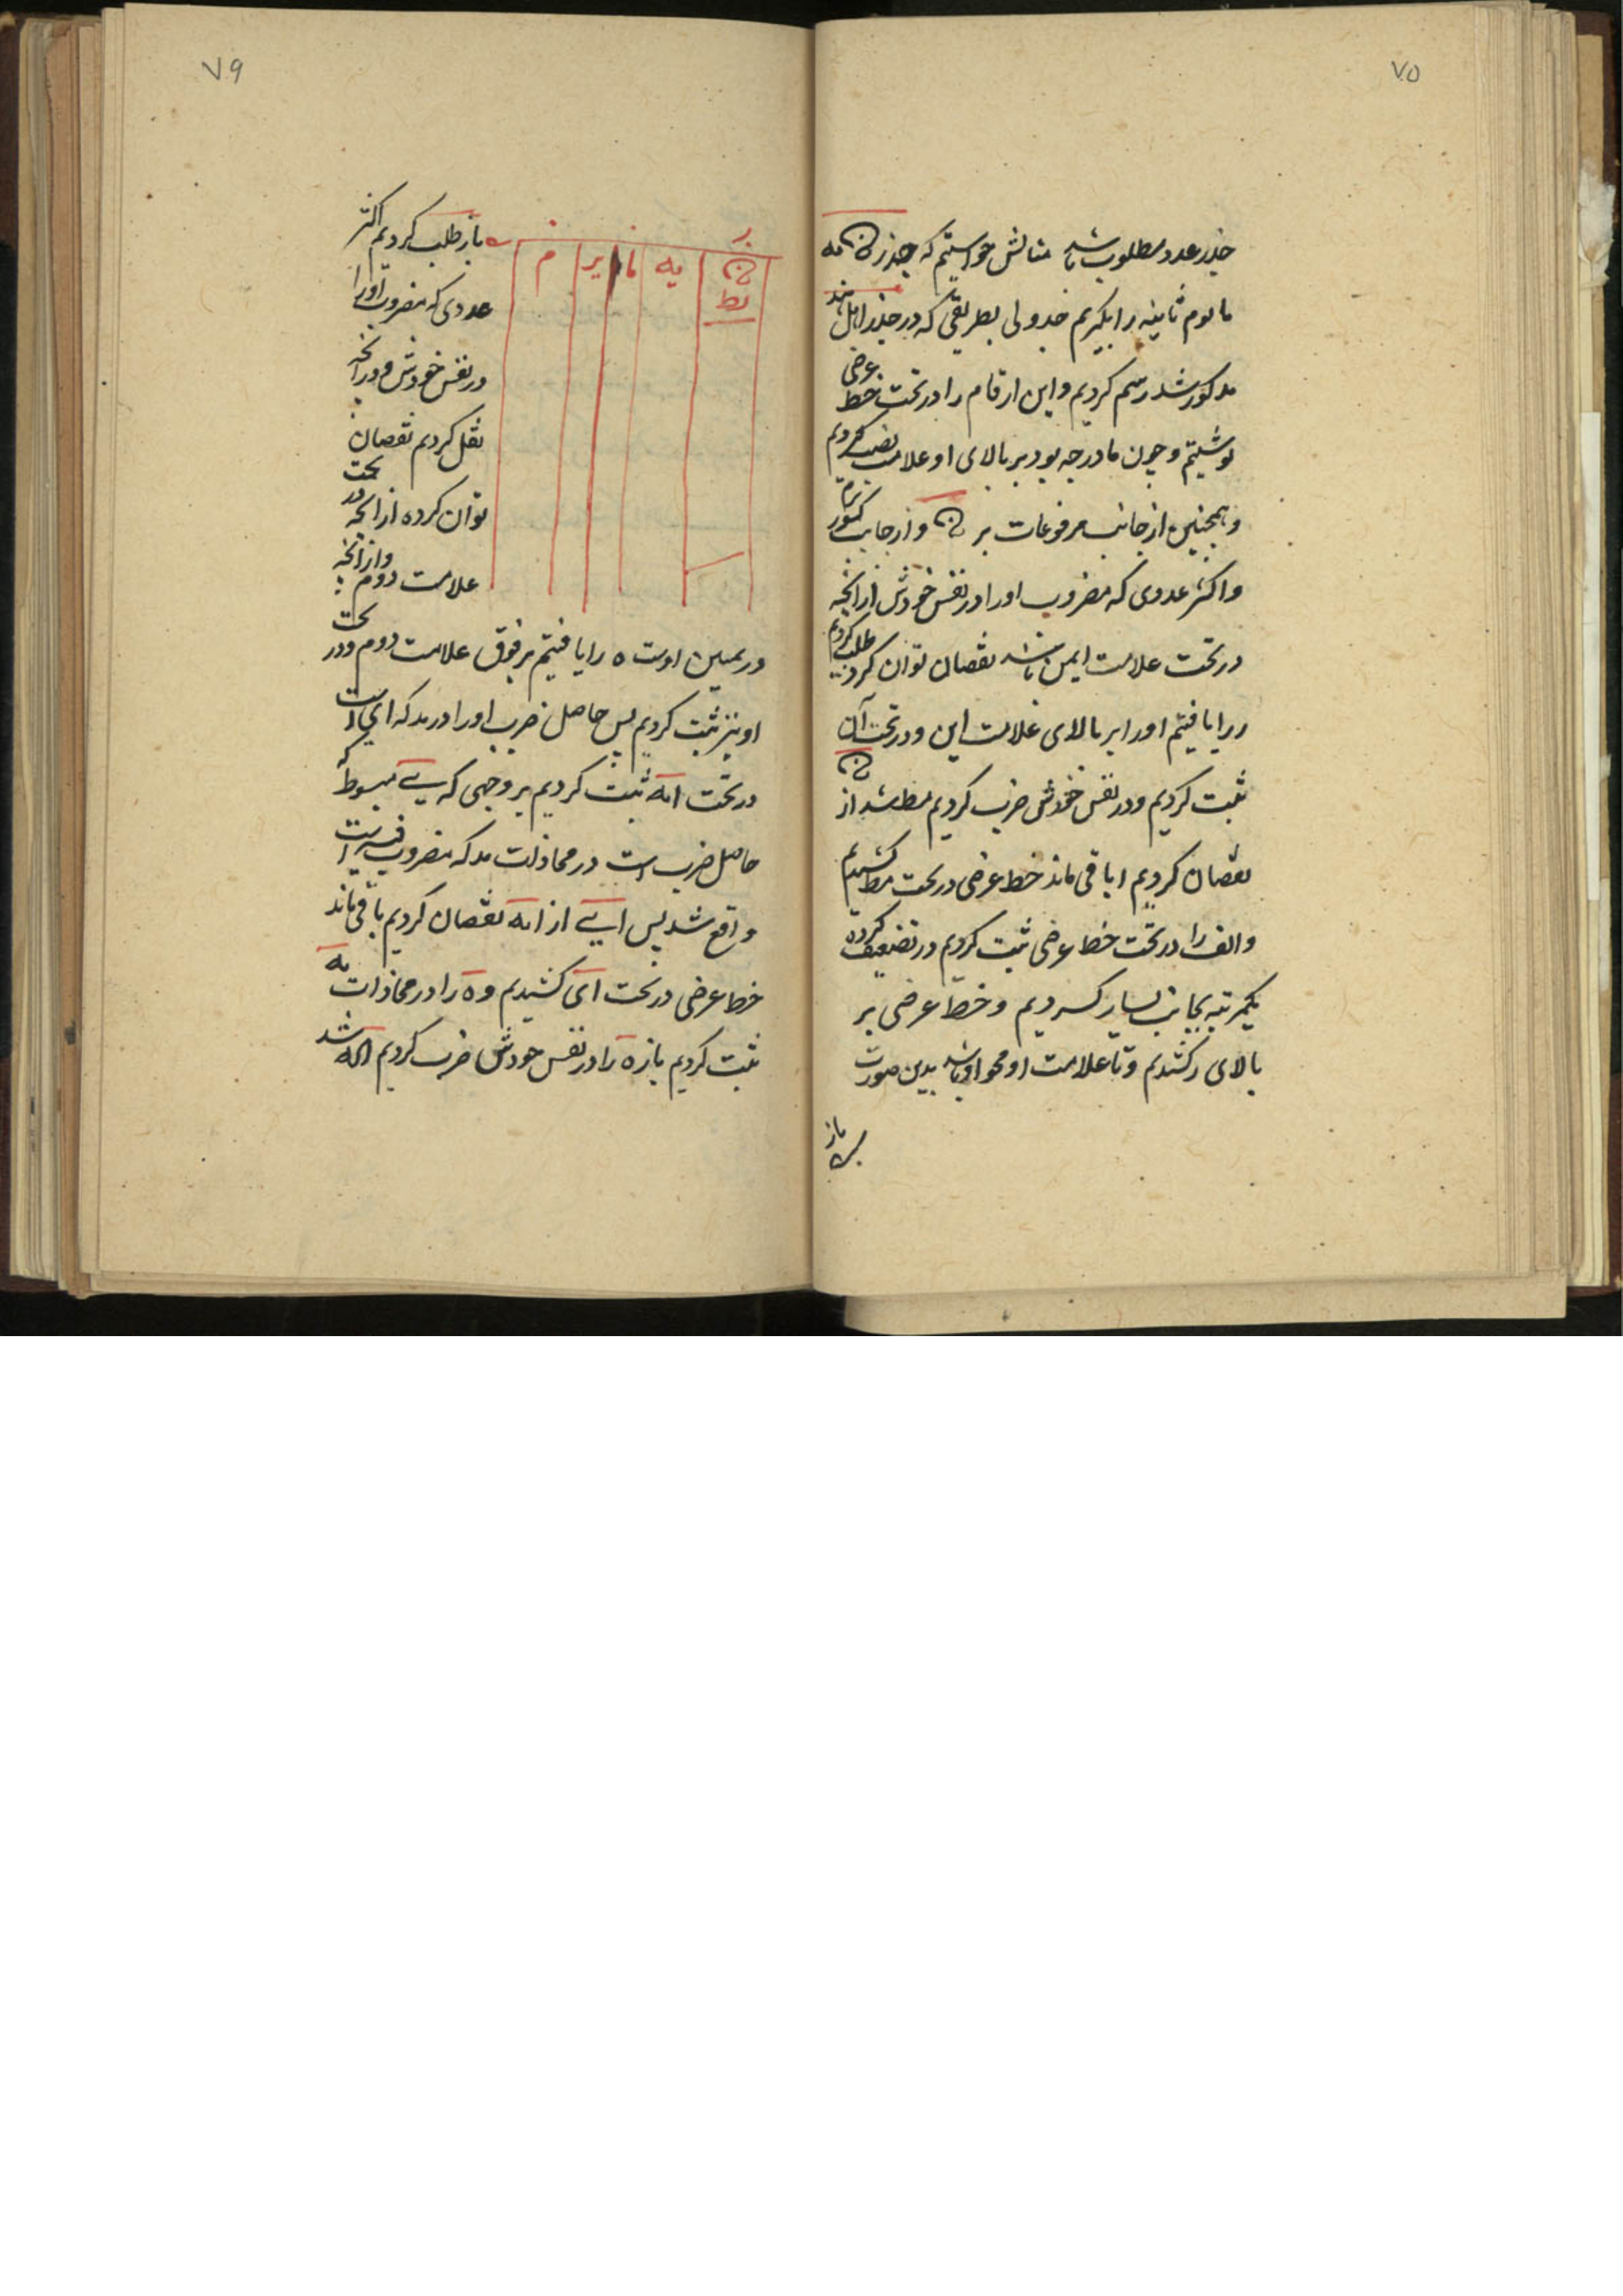 ۷۵
جذر عدد مطلوب باشد مثالش خواستیم که جذر ن یه
ما یوم ثانیه را بگیریم جدولی بطریقی که در جذر اهل هند
مذکور شد رسم کردیم و این ارقام را در تحت خط عرضی
نوشتیم و چون ما درجه بود بر بالای او علامت نصب کردیم
و همچنین از جانب مرفوعات بر ن و از جانب کسور بر م
و اکثر عددی که مضروب او را در نفس خودش از آنچه
در تحت علامت ایمن باشد نقصان توان کرد طلب کردیم
ر را یافتیم او را بر بالای علامت این و در تحت آن
ثبت کردیم و در نفس خودش ضرب کردیم مط شد از ن
نقصان کردیم ا باقی ماند خط عرضی در تحت مط کشیدیم
و الف را در تحت خط عرضی ثبت کردیم و ر تضعیف کرده
یکمرتبه بجانب یسار کردیم و خط عرضی بر
بالای ر کشیدیم و تا علامت او محو او باشد بدین صورت
باز
۷۹
ر
ن یه ما یر م
مط
باز طلب کردیم اکثر
عددی که مضروب او را
در نفس خودش و در آنچه
نقل کردیم نقصان
توان کرده از آنچه در تحت
علامت دوم و از آنچه
در یمین اوست ه را یافتیم بر فوق علامت دوم و در تحت
او نیز ثبت کردیم پس حاصل ضرب او را در ید که ای است
در تحت ایه ثبت کردیم بر وجهی که ی مبسوط که
حاصل ضرب است در محاذات ید که مضروب فیه است
واقع شد پس ای از ایه نقصان کردیم باقی ماند
خط عرضی در تحت ای کشیدیم و ه را در محاذات یه
ثبت کردیم باز ه را در نفس خودش ضرب کردیم الکه شد